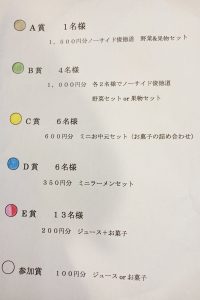 A賞　1名様
1，500円分ノーサイド俊徳道　野菜&果物セット
B賞　4名様
1，000円分　各2名様でノーサイド俊徳道
野菜セット or 果物セット
C賞　6名様
600円分 ミニお中元セット（お菓子の詰め合わせ）
D賞　6名様
350円分　ミニラーメンセット
E賞　13名様
200円分　ジュース+お菓子
参加賞　100円分　ジュース or お菓子